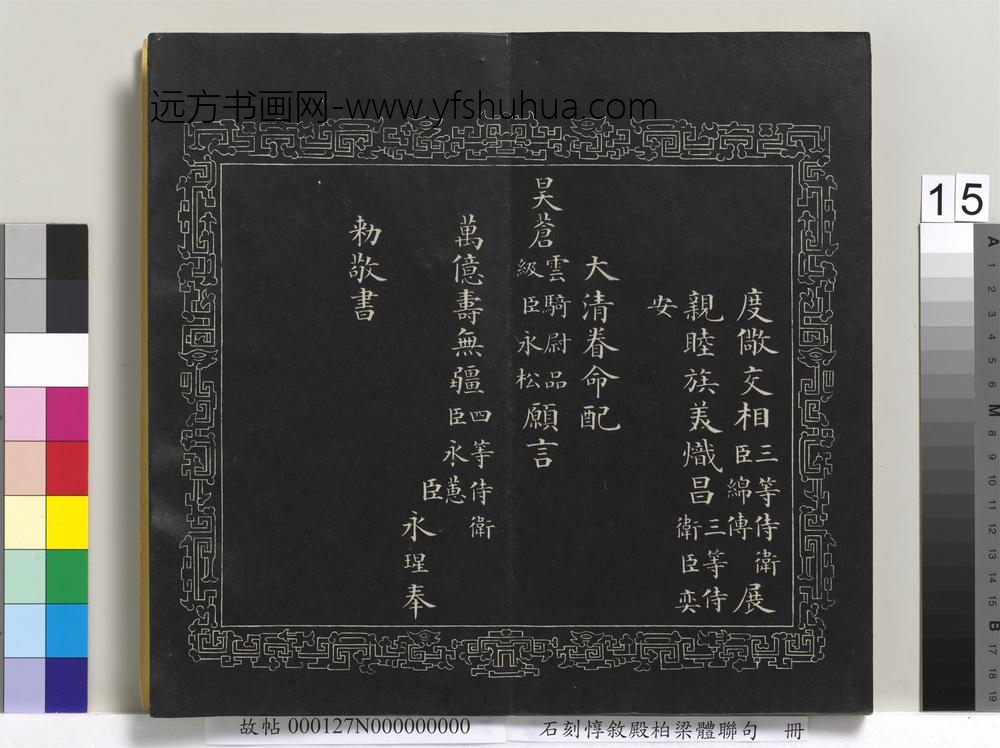 远方书画网-www.yfshuhua.com
度儆交相三等侍衛臣綿傳展
親睦族美熾昌三等侍衛臣奕
安
大清眷命配
昊蒼雲騎尉品級臣永松願言
萬億壽無疆四等侍衛臣永蕙
臣永瑆奉
勅敬書
15
A 1 2 3 4 5 6 M 8 9 10 11 12 13 14 15 B 17 18 19
故帖 000127N000000000
石刻惇敘殿柏梁體聯句 冊